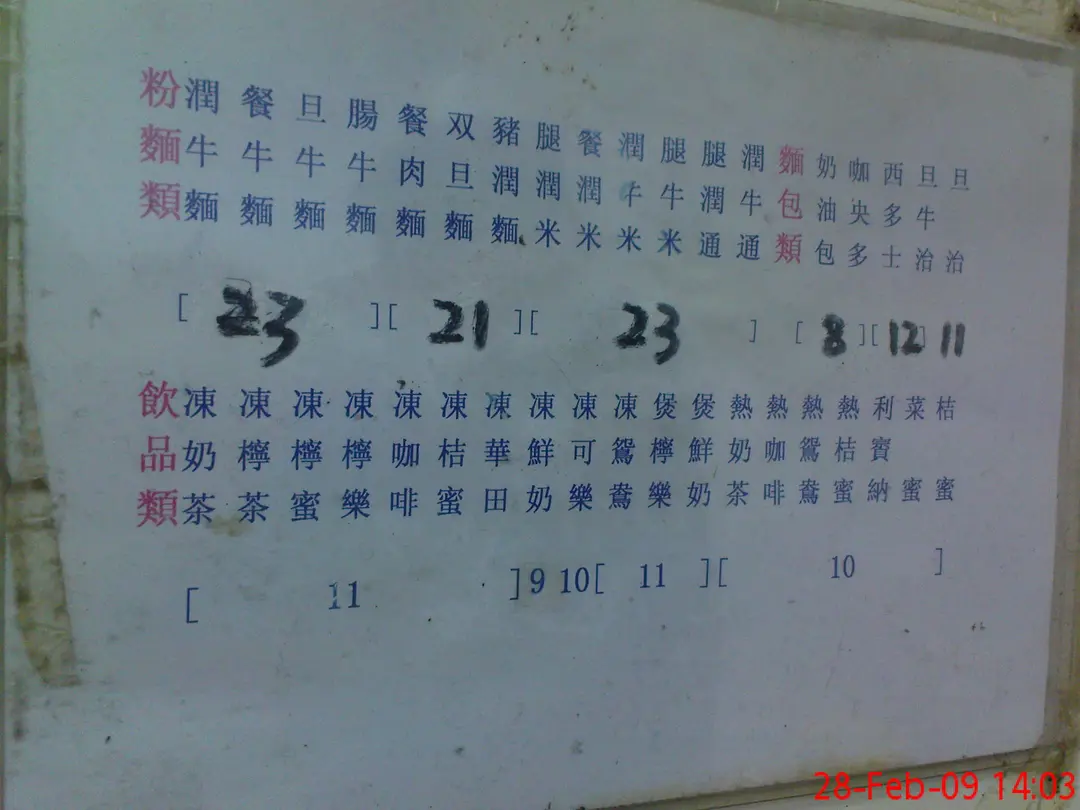 粉麵類
潤牛麵
餐牛麵
旦牛麵
腸牛麵
餐肉麵
双旦麵
豬潤麵
腿潤米
餐潤米
潤牛米
腿牛米
腿潤通
潤牛通
麵包類
奶油包
咖央多
西多士
旦牛治
旦治
[ 23 ][ 21 ][ 23 ] [ 8 ][ 12 ] 11
飲品類
凍奶茶
凍檸茶
凍檸蜜
凍檸樂
凍咖啡
凍桔蜜
凍華田
凍鮮奶
凍可樂
凍鴛鴦
煲檸樂
煲鮮奶
熱奶茶
熱咖啡
熱鴛鴦
熱桔蜜
利賓納
菜蜜
桔蜜
[ 11 ] 9 10 [ 11 ][ 10 ]
28-Feb-09 14:03